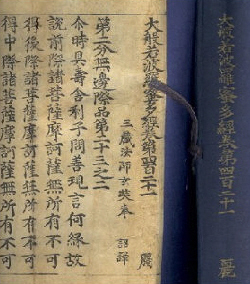 大般若波羅蜜多經卷第四百二十一 麗
大般若波羅蜜多經卷第四百二十一 麗
三藏法師玄奘奉 詔譯
第二分無邊際品第二十三之二
尒時具壽舍利子問善現言何緣故
說前際諸菩薩摩訶薩無所有不可
得後際諸菩薩摩訶薩無所有不可
得中際諸菩薩摩訶薩無所有不可